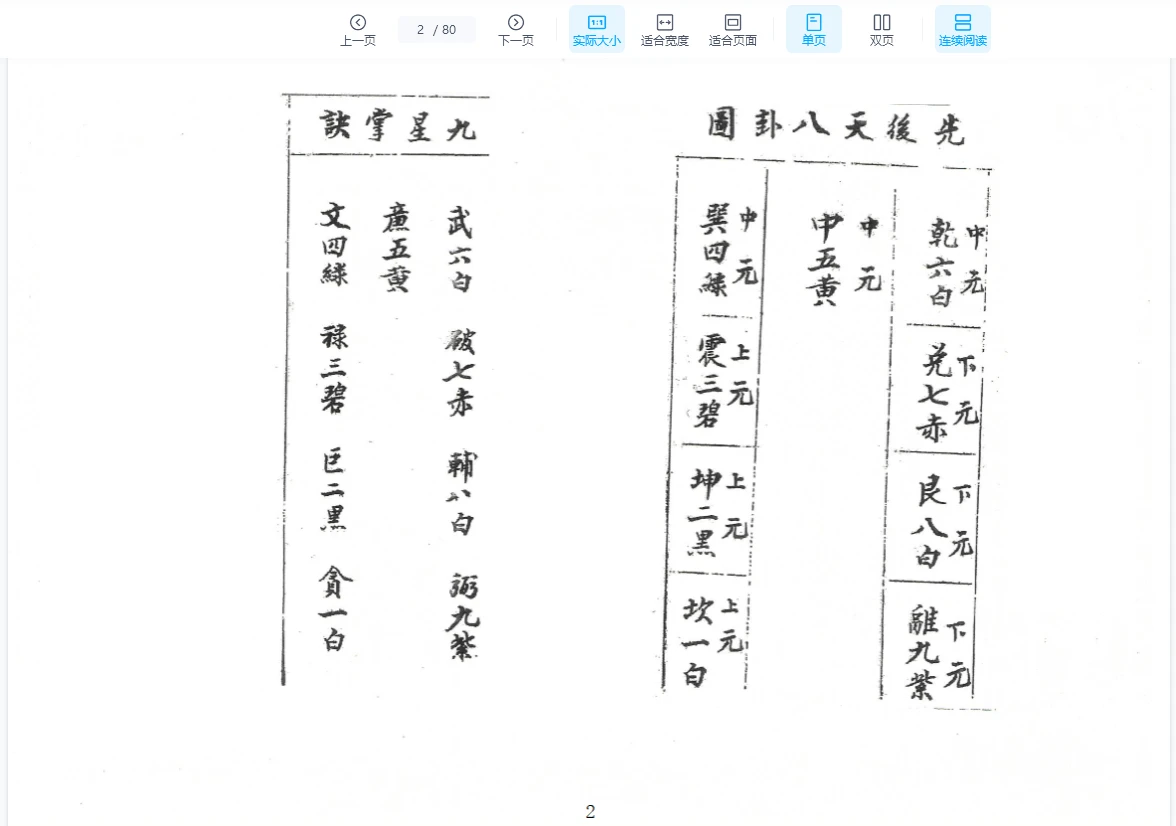 上一页
2 / 80
下一页
1:1
实际大小
适合宽度
适合页面
单页
双页
连续阅读
先後天八卦圖
中元
乾六白
下元
兌七赤
下元
艮八白
下元
離九紫
中元
中五黄
中元
巽四緑
上元
震三碧
上元
坤二黑
上元
坎一白
九星掌訣
武六白
破七赤
輔八白
弼九紫
廉五黄
文四緑
禄三碧
巨二黑
貪一白
2